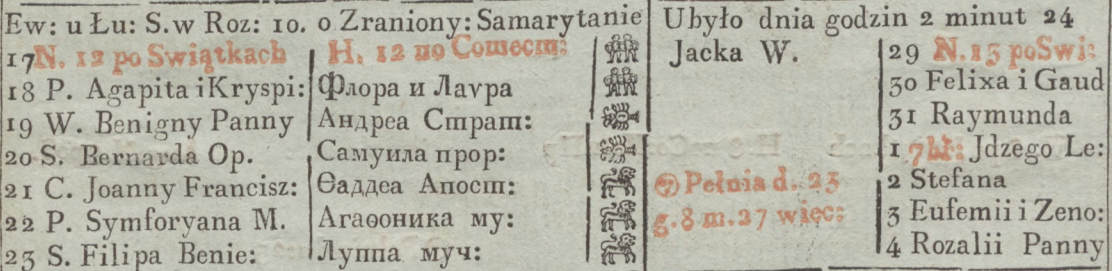 Ew: u Łu: S. w Roz: 10. o Zraniony: Samarytanie
17 N. 12 po Swiątkach
18 P. Agapita i Kryspi:
19 W. Benigny Panny
20 S. Bernarda Op.
21 C. Joanny Francisz:
22 P. Symforyana M.
23 S. Filipa Benie:
Н. 12 по Сошест:
Флора и Лаvра
Андреа Страт:
Самуила прор:
Ѳаддеа Апост:
Агаѳоника му:
Луппа муч:
Ubyło dnia godzin 2 minut 24
Jacka W.
Pełnia d. 23
g. 8 m. 27 więc:
29 N. 13 po Swi:
30 Felixa i Gaud
31 Raymunda
1 7br: Jdzego Le:
2 Stefana
3 Eufemii i Zeno:
4 Rozalii Panny